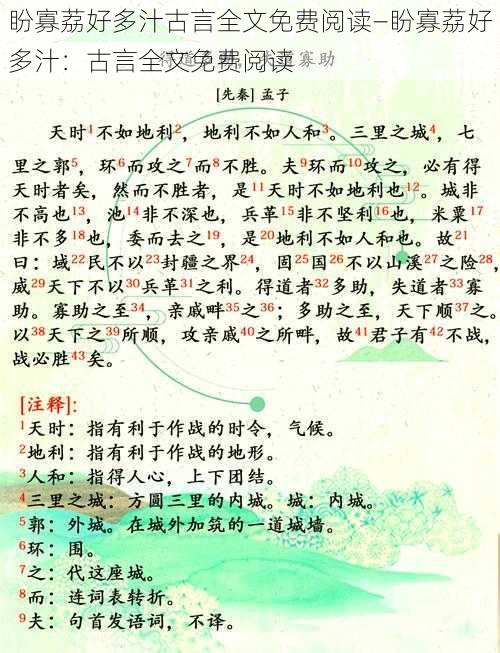 盼寡荔好多汁古言全文免费阅读—盼寡荔好
多汁：古言全文免费阅读
寡助
[先秦] 孟子
天时1不如地利2，地利不如人和3。三里之城4，七
里之郭5，环6而攻之7而8不胜。夫9环而10攻之，必有得
天时者矣，然而不胜者，是11天时不如地利也12。城非
不高也13，池14非不深也，兵革15非不坚利16也，米粟17
非不多18也，委而去之19，是20地利不如人和也。故21
曰：域22民不以23封疆之界24，固25国26不以山溪27之险28，
威29天下不以30兵革31之利。得道者32多助，失道者33寡
助。寡助之至34，亲戚畔35之36；多助之至，天下顺37之。
以38天下之39所顺，攻亲戚40之所畔，故41君子有42不战，
战必胜43矣。
[注释]:
1天时：指有利于作战的时令，气候。
2地利：指有利于作战的地形。
3人和：指得人心，上下团结。
4三里之城：方圆三里的内城。城：内城。
5郭：外城。在城外加筑的一道城墙。
6环：围。
7之：代这座城。
8而：连词表转折。
9夫：句首发语词，不译。